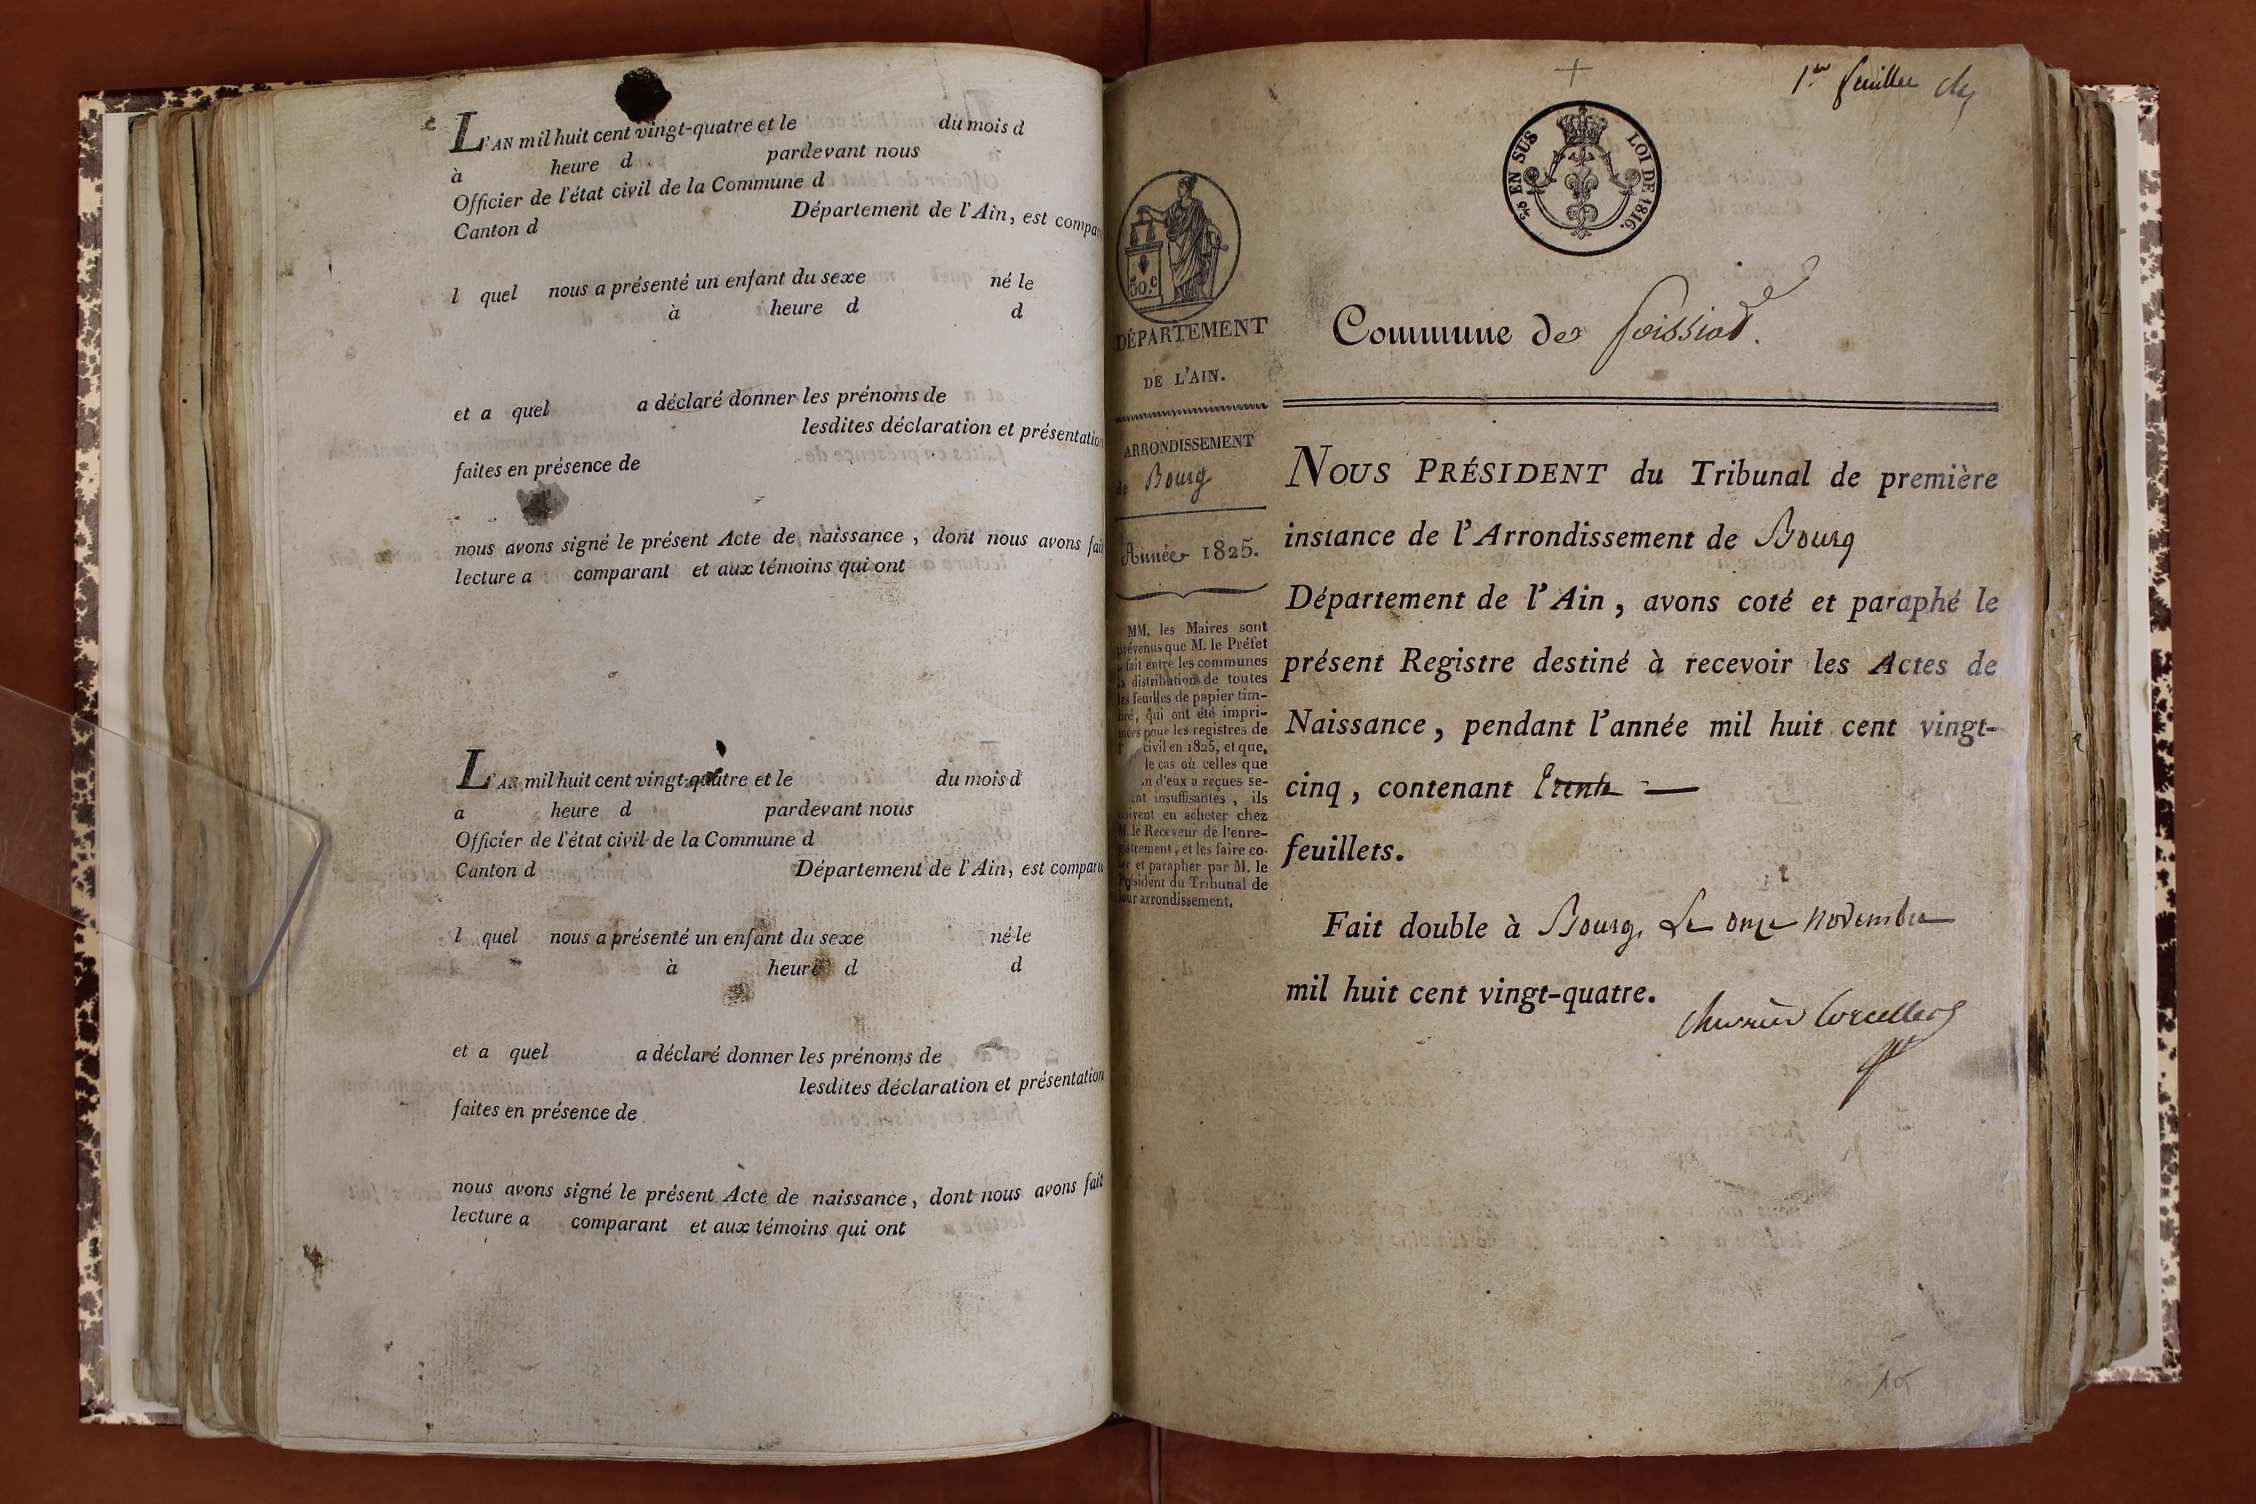 L'AN mil huit cent vingt-quatre et le du mois d
à heure d pardevant nous
Officier de l'état civil de la Commune d
Canton d Département de l'Ain, est comparu
l quel nous a présenté un enfant du sexe né le
à heure d d
et a quel a déclaré donner les prénoms de
lesdites déclaration et présentation
faites en présence de
nous avons signé le présent Acte de naissance, dont nous avons fait
lecture a comparant et aux témoins qui ont
L'AN mil huit cent vingt-quatre et le du mois d
à heure d pardevant nous
Officier de l'état civil de la Commune d
Canton d Département de l'Ain, est comparu
l quel nous a présenté un enfant du sexe né le
à heure d d
et a quel a déclaré donner les prénoms de
lesdites déclaration et présentation
faites en présence de
nous avons signé le présent Acte de naissance, dont nous avons fait
lecture a comparant et aux témoins qui ont
1er feuillet
EN SUS LOI DE 1816.
50.c
DÉPARTEMENT
DE L'AIN.
ARRONDISSEMENT
de Bourg
Année 1825.
MM. les Maires sont
prévenus que M. le Préfet
a fait entre les communes
la distribution de toutes
les feuilles de papier tim-
bré, qui ont été impri-
mées pour les registres de
civil en 1825, et que,
le cas où celles que
d'eux a reçues se-
insuffisantes, ils
doivent en acheter chez
M. le Receveur de l'enre-
gistrement, et les faire co-
ter et parapher par M. le
Président du Tribunal de
leur arrondissement.
Commune de Poissiat.
NOUS PRÉSIDENT du Tribunal de première
instance de l'Arrondissement de Bourg
Département de l'Ain, avons coté et paraphé le
présent Registre destiné à recevoir les Actes de
Naissance, pendant l'année mil huit cent vingt-
cinq, contenant trente
feuillets.
Fait double à Bourg, Le onze novembre
mil huit cent vingt-quatre.